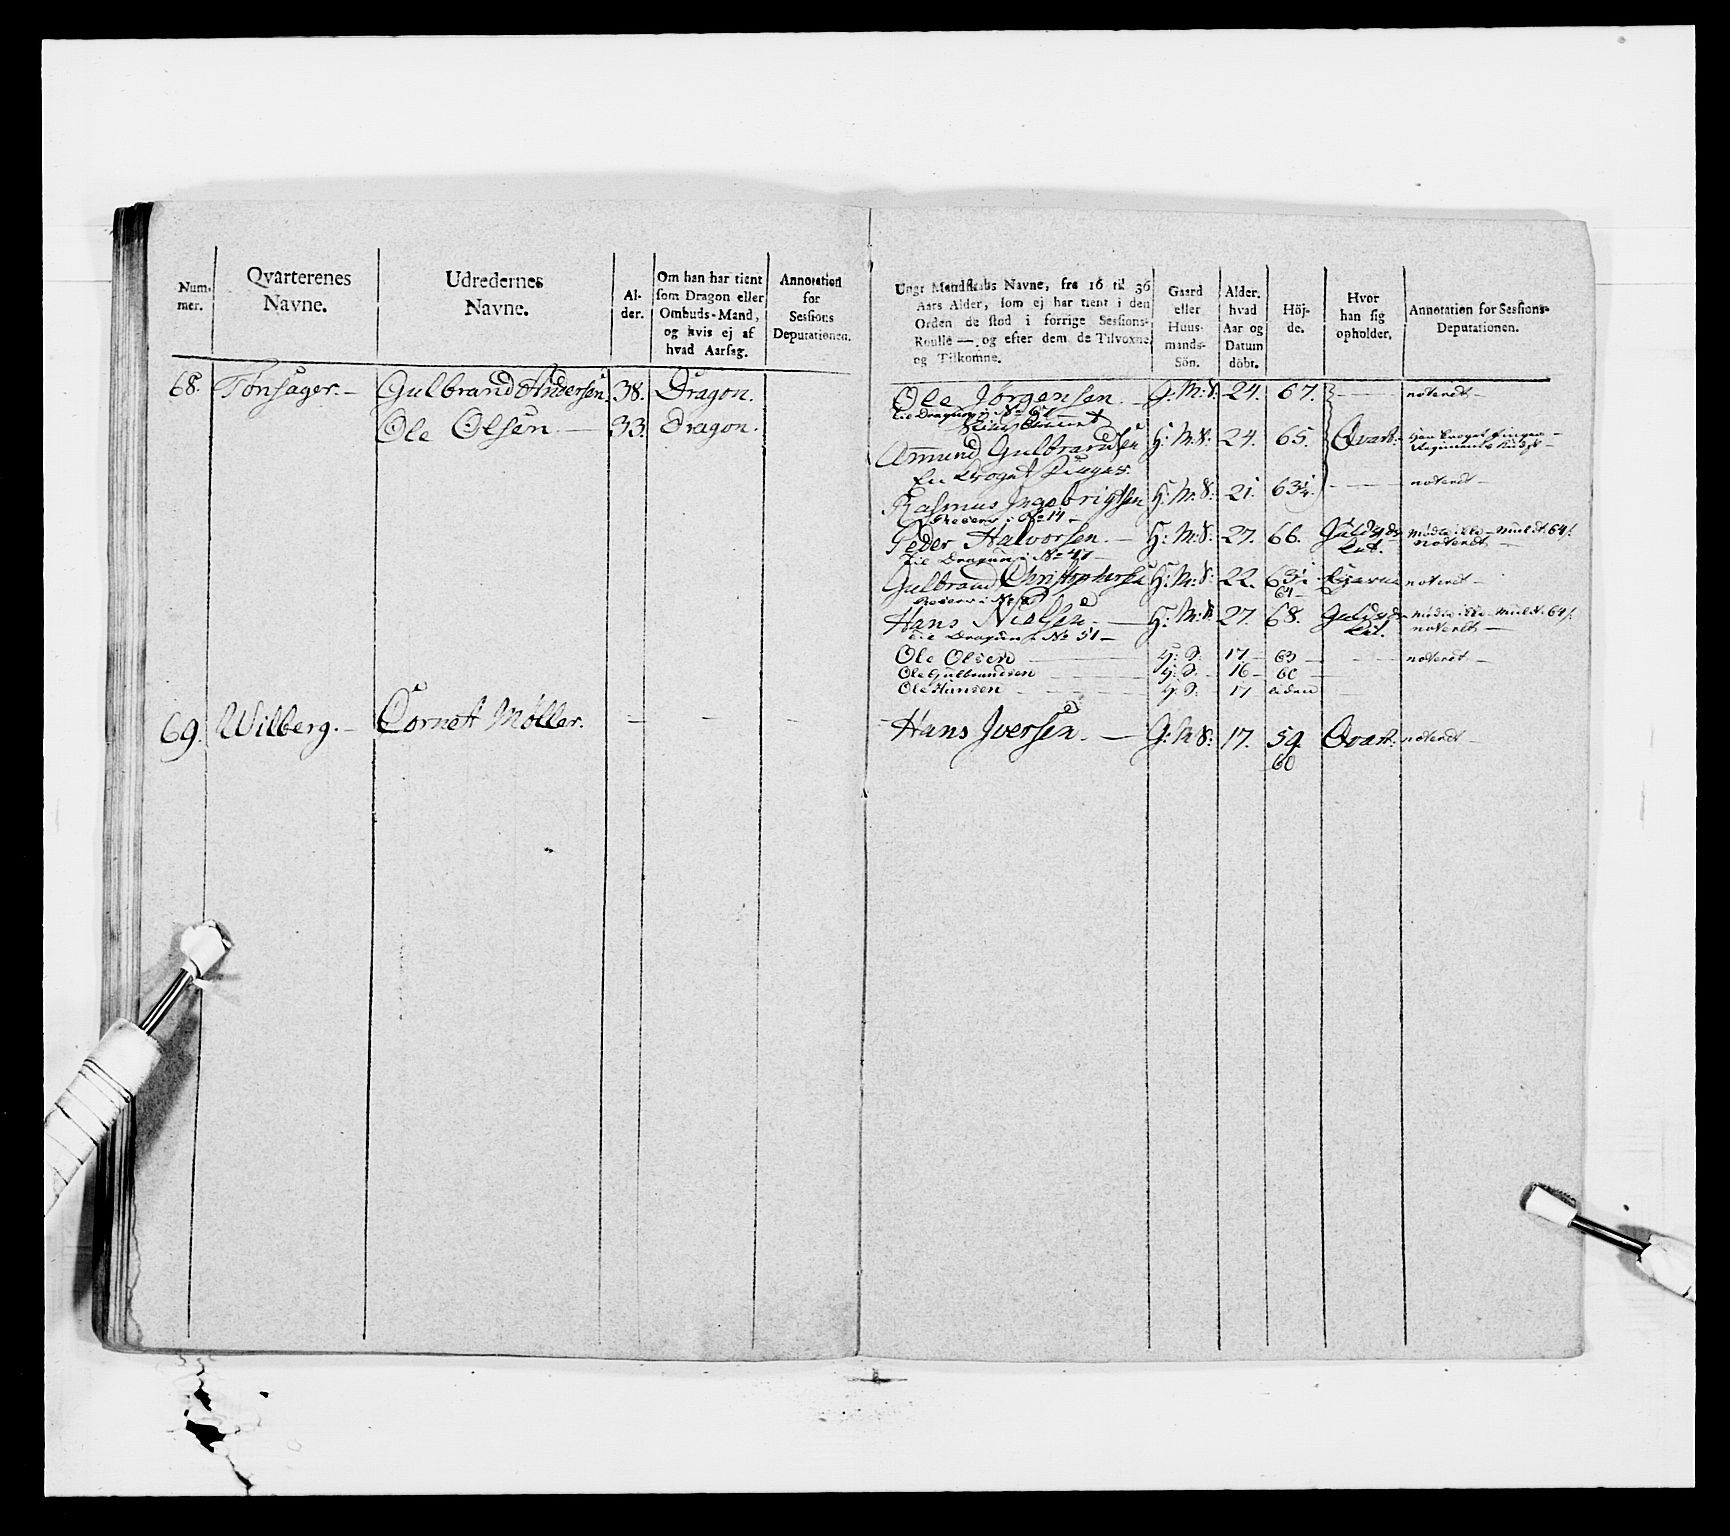 Num-
mer.
Qvarterenes
Navne.
Udredernes
Navne.
Al-
der.
Om han har tient
som Dragon eller
Ombuds-Mand,
og hvis ej af
hvad Aarsag.
Annotation
for
Sessions
Deputationen.
68. Tønsager. Gulbrand Andersen 38. Dragon.
Ole Olsen 33. Dragon.
69. Wilberg. Cornet Møller. — — —
Unge Mandskabs Navne, fra 16 til 36
Aars Alder, som ej har tient i den
Orden de stod i forrige Sessions-
Roulle — og efter dem de Tilvoxne
og Tilkomne.
Gaard
eller
Huus-
mands-
Sön.
Alder.
hvad
Aar og
Datum
döbt.
Höj-
de.
Hvor
han sig
opholder.
Annotation for Sessions-
Deputationen.
Ole Jørgensen G: M: S: 24. 67. noteret
til Dragun i No 67
Amund Gulbrandsen H: M: S: 24. 65. Qvart:
En Kroget Finger
Rasmus Ingebrigtsen H: M: S: 21. 63¼ noteret
Reserv i No 14
Peder Halvorsen. H: M: S: 27. 66. mødte ikke – Muldt. 64 s.
til Dragun i No 47 noteret
Gulbrand Christophersen H: M: S: 22. 63¼ noteret
64
Hans Nielsen H: M: S: 27. 68. mødte ikke – Muldt. 64 s.
til Dragun i No 51 noteret
Ole Olsen G: S: 17 63 noteret
Ole Gulbrandsen G: S: 16 60
Ole Hansen G: S: 17 liden
Hans Iversen. G: M: S: 17. 59. Qvart: noteret
60